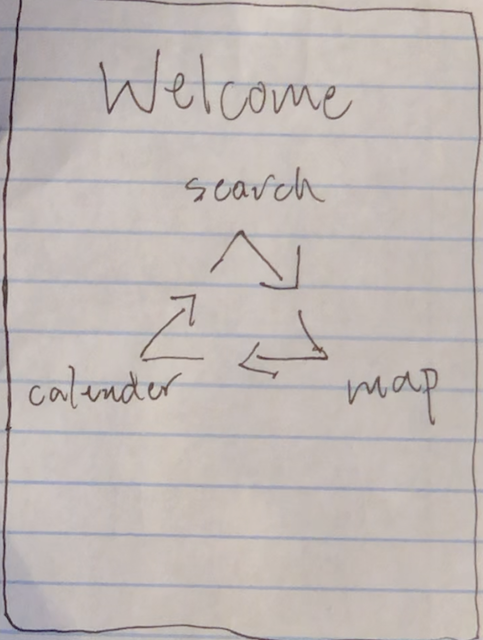 Welcome
search
calender
map